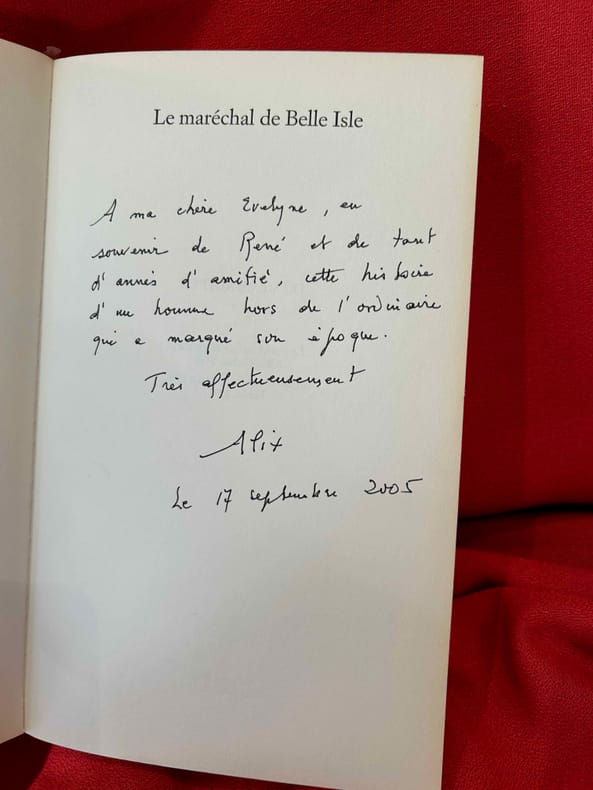 Le maréchal de Belle Isle
A ma chère Evelyne, en
souvenir de René et de tant
d'annés d'amitié, cette histoire
d'un homme hors de l'ordinaire
qui a marqué son époque.
Très affectueusement
Alix
Le 17 septembre 2005